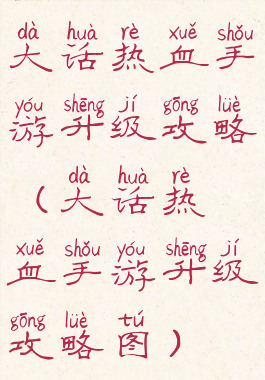 dà huà rè xuě shǒu
大话热血手
yóu shēng jí gōng lüè
游升级攻略
dà huà rè
（大话热
xuě shǒu yóu shēng jí
血手游升级
gōng lüè tú
攻略图）